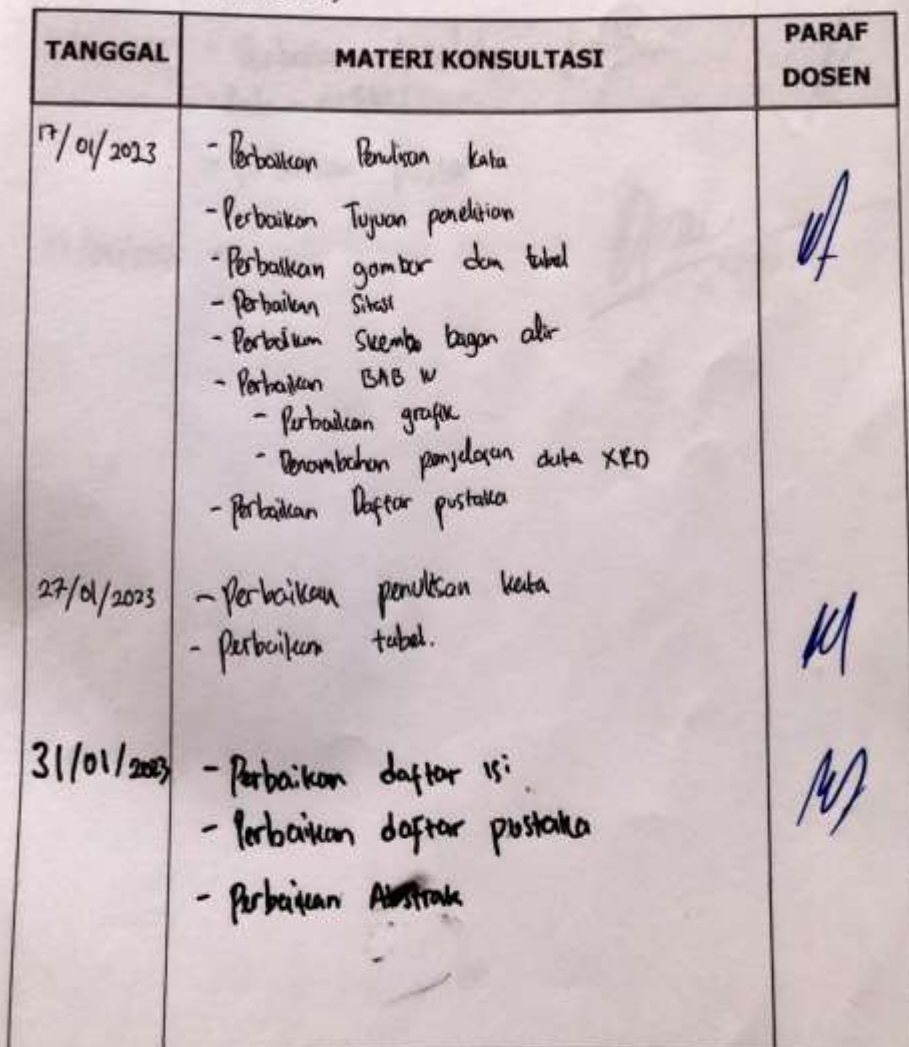 TANGGAL
MATERI KONSULTASI
PARAF
DOSEN
17/01/2023
- Perbaikan Penulisan kata
- Perbaikan Tujuan penelitian
- Perbaikan gambar dan tabel
- Perbaikan Sitasi
- Perbaikan Skema bagan alir
- Perbaikan BAB IV
- Perbaikan grafik
- Penambahan penjelasan data XRD
- Perbaikan Daftar pustaka
27/01/2023
- Perbaikan penulisan kata
- Perbaikan tabel.
31/01/2023
- Perbaikan daftar isi
- Perbaikan daftar pustaka
- Perbaikan Abstrak